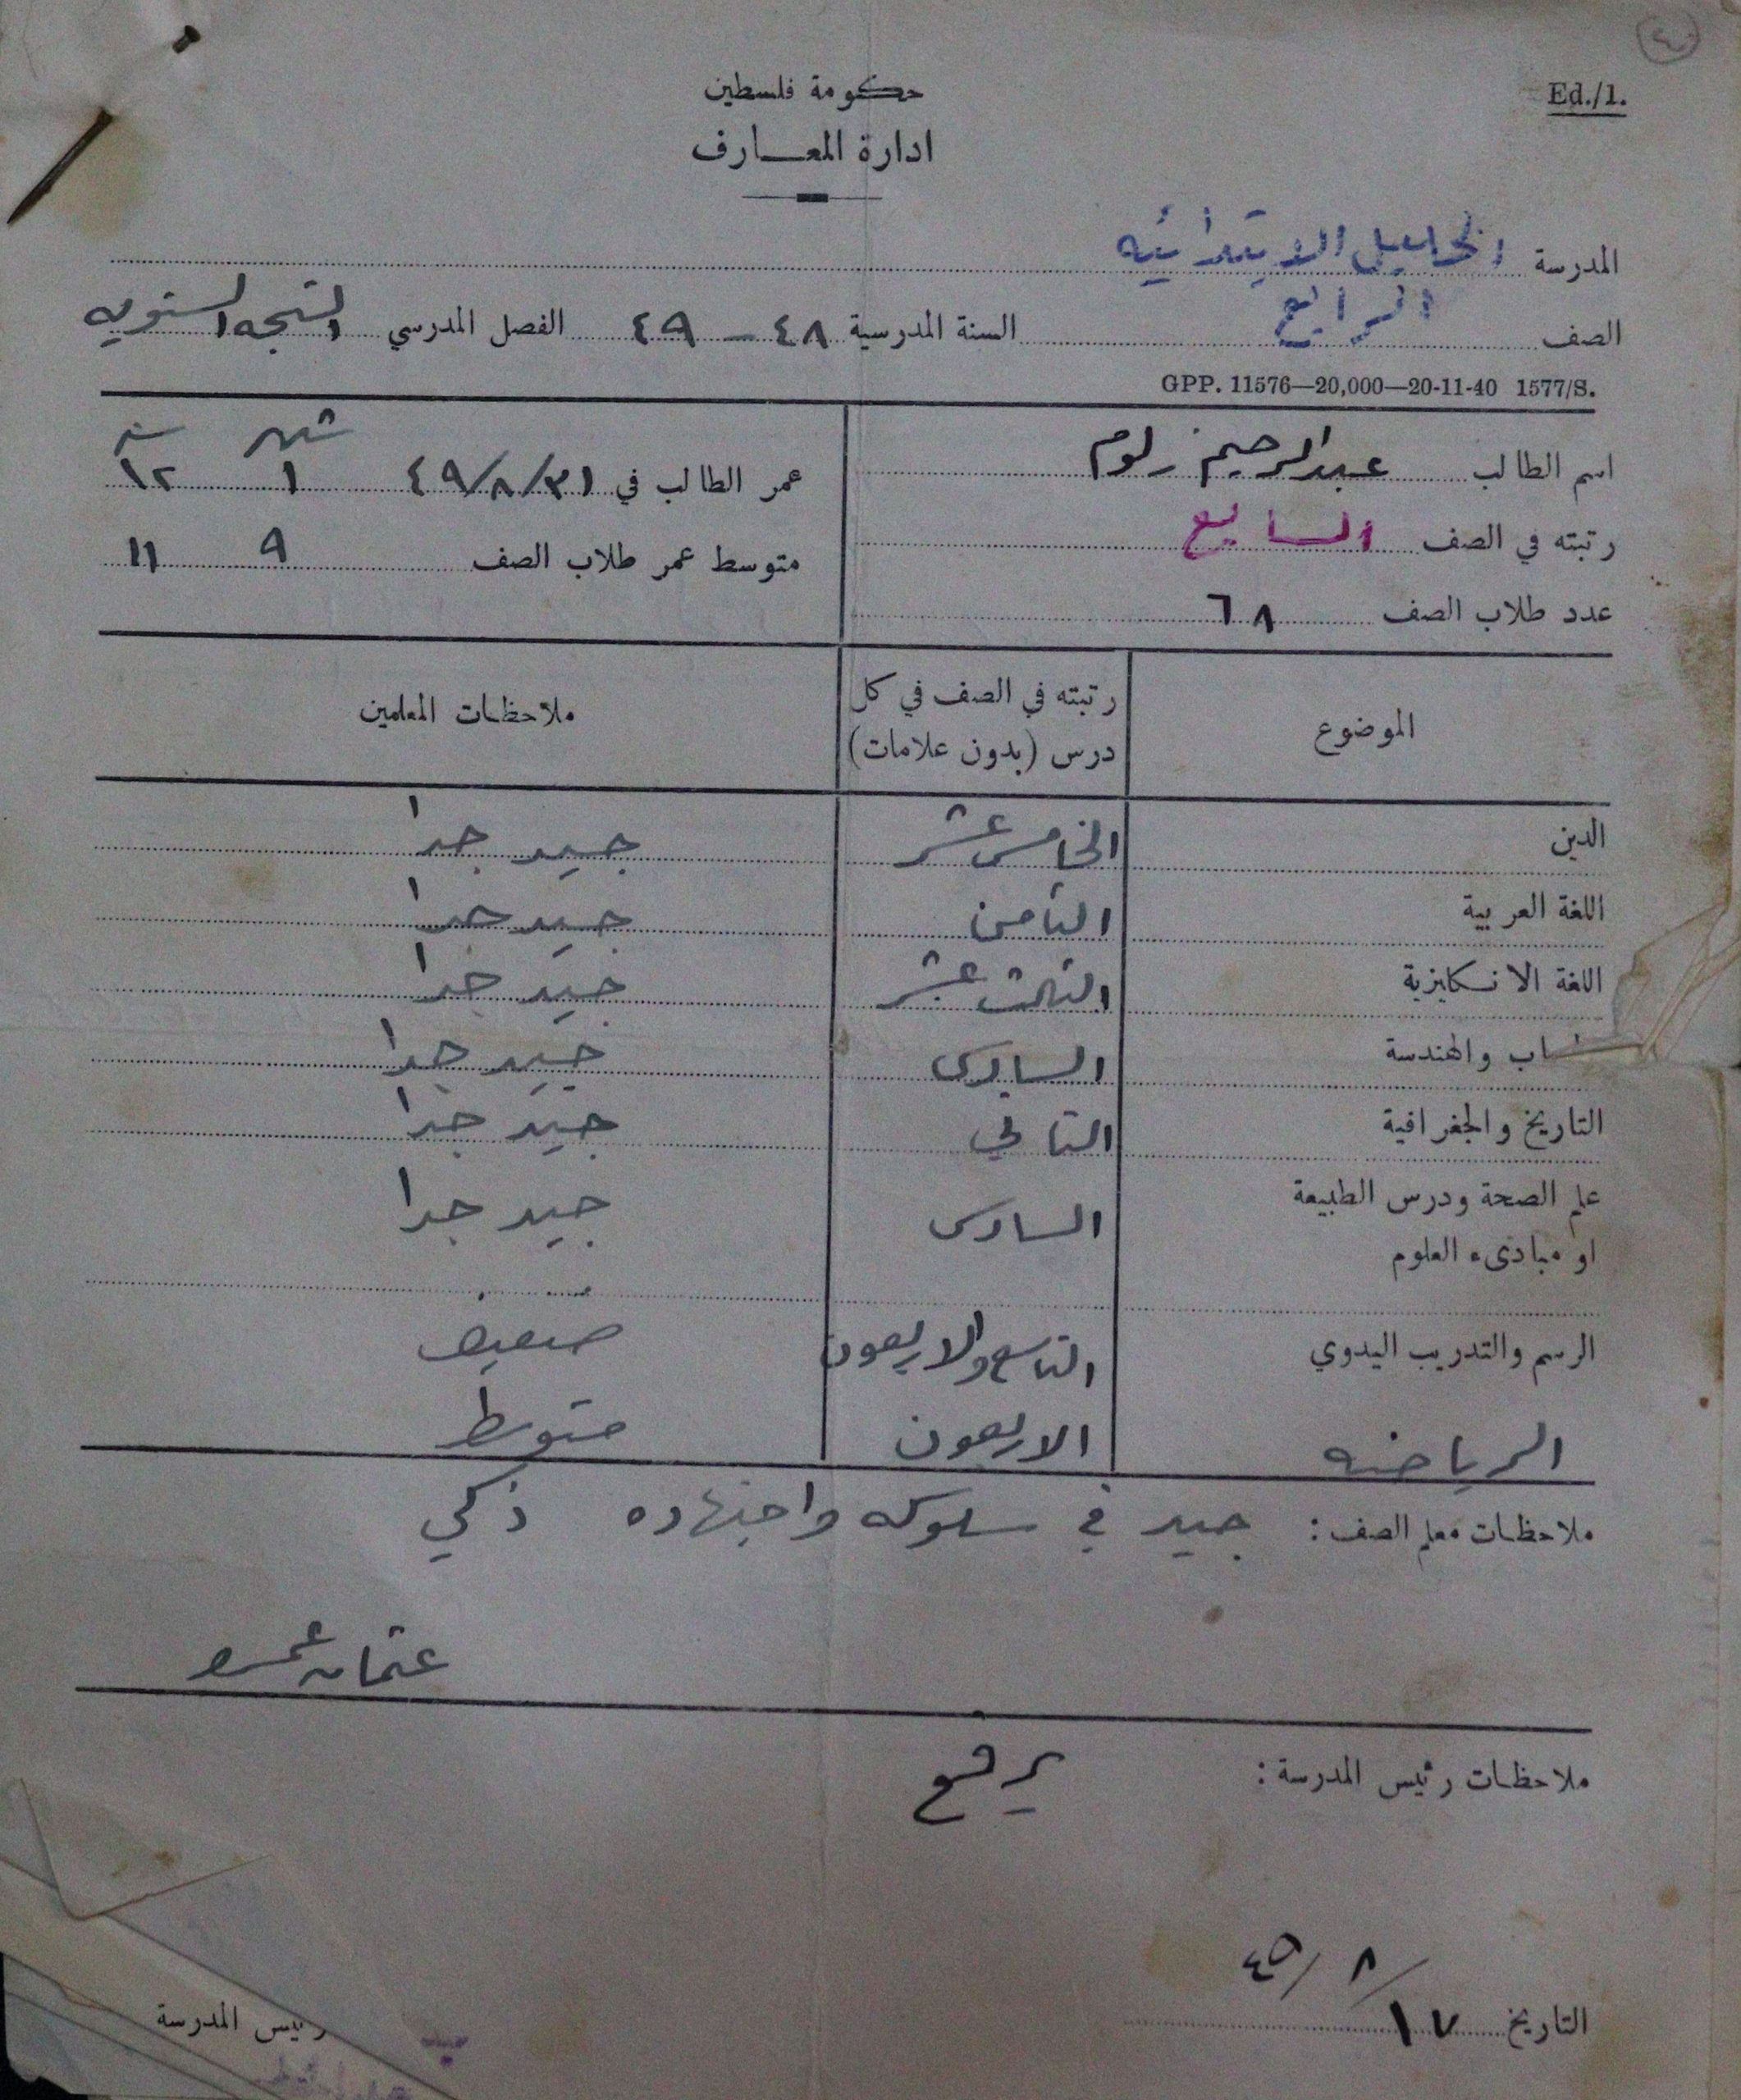 ٤٠
Ed./1.
حكومة فلسطين
ادارة المعارف
المدرسة الخليل الابتدائيه
الصف الرابع السنة المدرسية ٤٨ – ٤٩ الفصل المدرسي النتيجه السنويه
GPP. 11576—20,000—20-11-40 1577/S.
اسم الطالب عبد الرحيم زلوم
رتبته في الصف السابع
عدد طلاب الصف ٦٨
شهر سنه
عمر الطالب في ٤٩/٨/٣١ ١ ١٢
متوسط عمر طلاب الصف ٩ ١١
الموضوع رتبته في الصف في كل درس (بدون علامات) ملاحظات المعلمين
الدين الخامس عشر جيد جدا
اللغة العربية الثامن جيد جدا
اللغة الانكليزية الثالث عشر جيد جدا
ساب والهندسة السادس جيد جدا
التاريخ والجغرافية الثاني جيد جدا
علم الصحة ودرس الطبيعة السادس جيد جدا
او مبادىء العلوم
الرسم والتدريب اليدوي التاسع والاربعون ضعيف
الرياضه الاربعون متوسط
ملاحظات معلم الصف: جيد في سلوكه واجتهاده ذكي
عثمان عمرو
ملاحظات رئيس المدرسة: يرفع
التاريخ ١٧/٨/٤٩
رئيس المدرسة